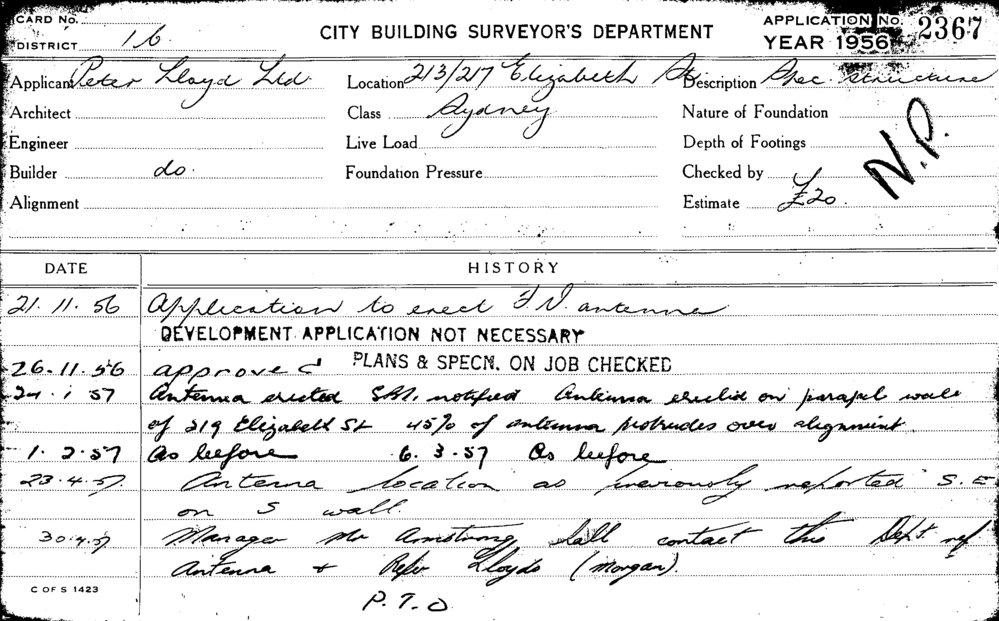 CARD No.
DISTRICT 16
CITY BUILDING SURVEYOR'S DEPARTMENT
APPLICATION No. 2367
YEAR 1956
Applicant Peter Lloyd Ltd Location 213/217 Elizabeth St Description Spec structure
Architect Class Sydney Nature of Foundation
Engineer Live Load Depth of Footings
Builder do. Foundation Pressure Checked by
Alignment Estimate £20
N.P.
DATE HISTORY
21.11.56 Application to erect T.V. antenna
DEVELOPMENT APPLICATION NOT NECESSARY
26.11.56 approved PLANS & SPECN. ON JOB CHECKED
24.1.57 Antenna erected notified Antenna erected on parapet wall
of 219 Elizabeth St 45% of antenna protrudes over alignment.
1.2.57 As before 6.3.57 As before
23.4.57. Antenna location as previously reported S.E
on S wall.
30.4.57 Manager Mr Armstrong contact this Dept ref
Antenna & Lloyds (Morgan).
C OF S 1423
P.T.O